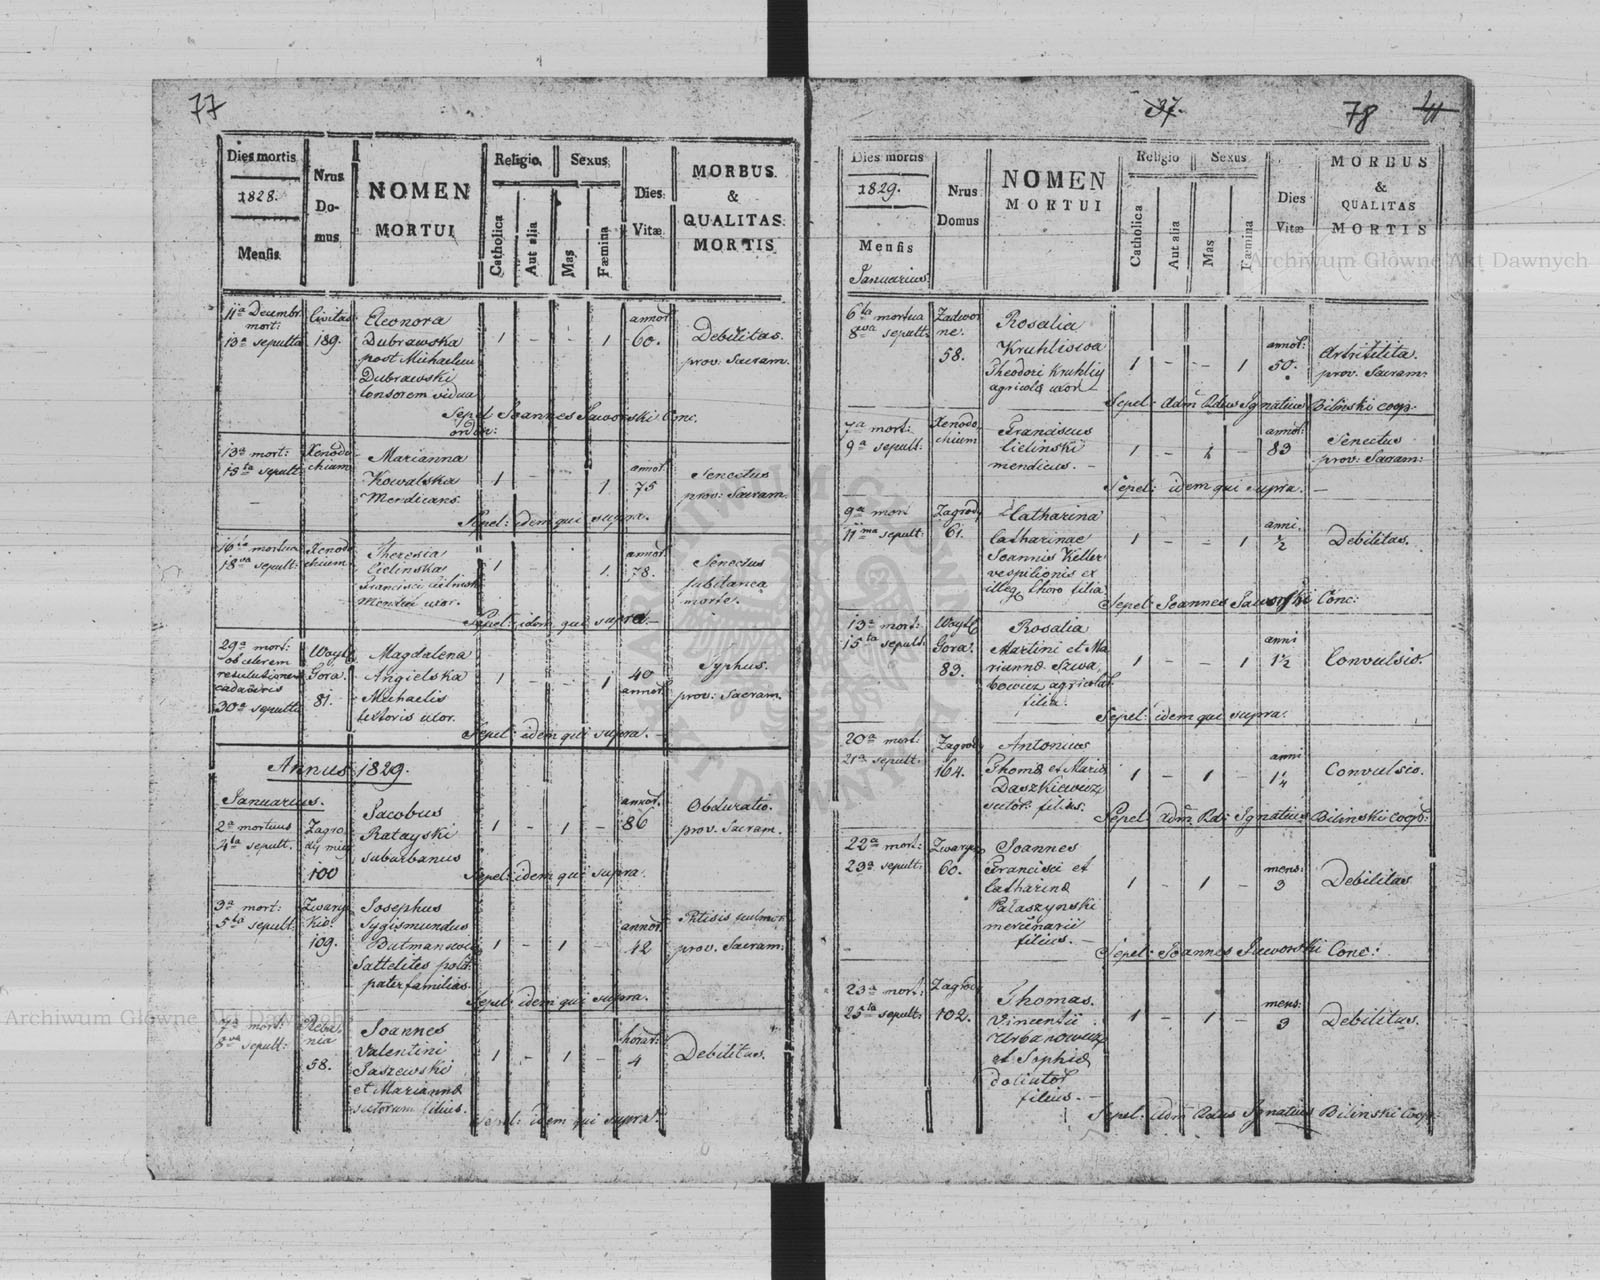 77
Dies mortis
1828.
Mensis
Nrus
Do-
mus
NOMEN
MORTUI
Religio
Catholica
Aut alia
Sexus
Mas
Fæmina
Dies
Vitæ
MORBUS
&
QUALITAS
MORTIS
11a Decembr
mort:
13a sepulta
Civitas
189.
Eleonora
Dubrawska
post Michaelem
Dubrawski
tonsorem vidua
1 - - 1
annor
60.
Debilitas.
prov. Sacram.
Sepel Joannes Jaworski Conc.
ordin:
13a mort:
15ta sepult
Xenodo
chium
Marianna
Kowalska
Mendicans.
1 - - 1
annor
75
Senectus
prov: Sacram.
Sepel: idem qui supra.
16ta mortua
18va sepult:
Xenodo
chium
Theresia
Cielinska
Francisci Cielinski
Mendici uxor.
1 - - 1
annor
78.
Senectus
subitanea
morte.
Sepel: idem qui supra.
29a mort:
ob celerem
resolutionem
cadaveris
30a sepulta
Woyt
Gora.
81.
Magdalena
Angielska
Michaelis
textoris uxor.
1 - - 1
40
annor
Typhus.
prov: Sacram.
Sepel: idem qui supra.
Annus 1829.
Januarius.
2a mortuus
4ta sepult.
Zagro
dy
100
Jacobus
Ratayski
suburbanus
1 - 1 -
annor.
86
Obduratio.
prov. Sacram.
Sepel: idem qui supra.
3a mort:
5ta sepult
Zwary
Kio.
109.
Josephus
Sygismundus
Sattelites polit.
pater familias.
1 - 1 -
annor.
42
Phtisis pulmon.
prov. Sacram:
Sepel: idem qui supra.
7a mort:
8va sepult:
nia
58.
Joannes
Valentini
Jaszewski
et Mariannæ
sutorum filius.
1 - 1 -
horar:
4
Debilitas.
Sepel: idem qui supra.
37.
78
41
Dies mortis
1829.
Mensis
Januarius
Nrus
Domus
NOMEN
MORTUI
Religio
Catholica
Aut alia
Sexus
Mas
Fæmina
Dies
Vitæ
MORBUS
&
QUALITAS
MORTIS
6ta mortua
8va sepult:
Zadwor
ne.
58.
Rosalia
Kruhliowa
Theodori Kruhliy
agricolæ uxor
1 - - 1
annor:
50.
Artritilita.
prov. Sacram:
Sepel: Adm Rdus Ignatius Bilinski coop.
7a mort:
9a sepult:
Xenodo
chium
Franciscus
Cielinski
mendicus. -
1 - 1 -
annor:
83
Senectus
prov: Sacram:
Sepel: idem qui supra. -
9a mort
11ma sepult:
Zagrody
61.
Catharina
Catharinae
Joannis Keller
vespilionis ex
illeg thoro filia
1 - - 1
anni
1/2
Debilitas.
Sepel: Joannes Jaworski Conc:
13a mort:
15ta sepult:
Woyt
Gora.
83.
Rosalia
Martini et Ma
riannæ Szwa
bowicz agricolar
filia.
1 - - 1
anni
1 1/2
Convulsio.
Sepel: idem qui supra.
20a mort:
21a sepult:
Zagrody
164.
Antonius
Thomæ et Mariæ
Daszkiewicz
sutor. filius.
1 - 1 -
anni
1 1/4
Convulsio.
Sepel: Adm. Rd: Ignatius Bilinski coop:
22a mort:
23a sepult:
Zwaryc
60.
Joannes
Francisci et
Catharinæ
Palaszynski
mercinarii
filius. -
1 - 1 -
mens:
3
Debilitas
Sepel: Joannes Jaworski Conc:
23a mort:
25ta sepult:
Zagrody
102.
Thomas.
Vincentii
Urbanowicz
et Sophiæ
doliator
filius. -
1 - 1 -
mens:
3
Debilitas.
Sepel: Adm Rdus Ignatius Bilinski Coop:
Archiwum Główne Akt Dawnych
Archiwum Główne Akt Dawnych
ARCHIWUM GŁÓWNE AKT DAWNYCH